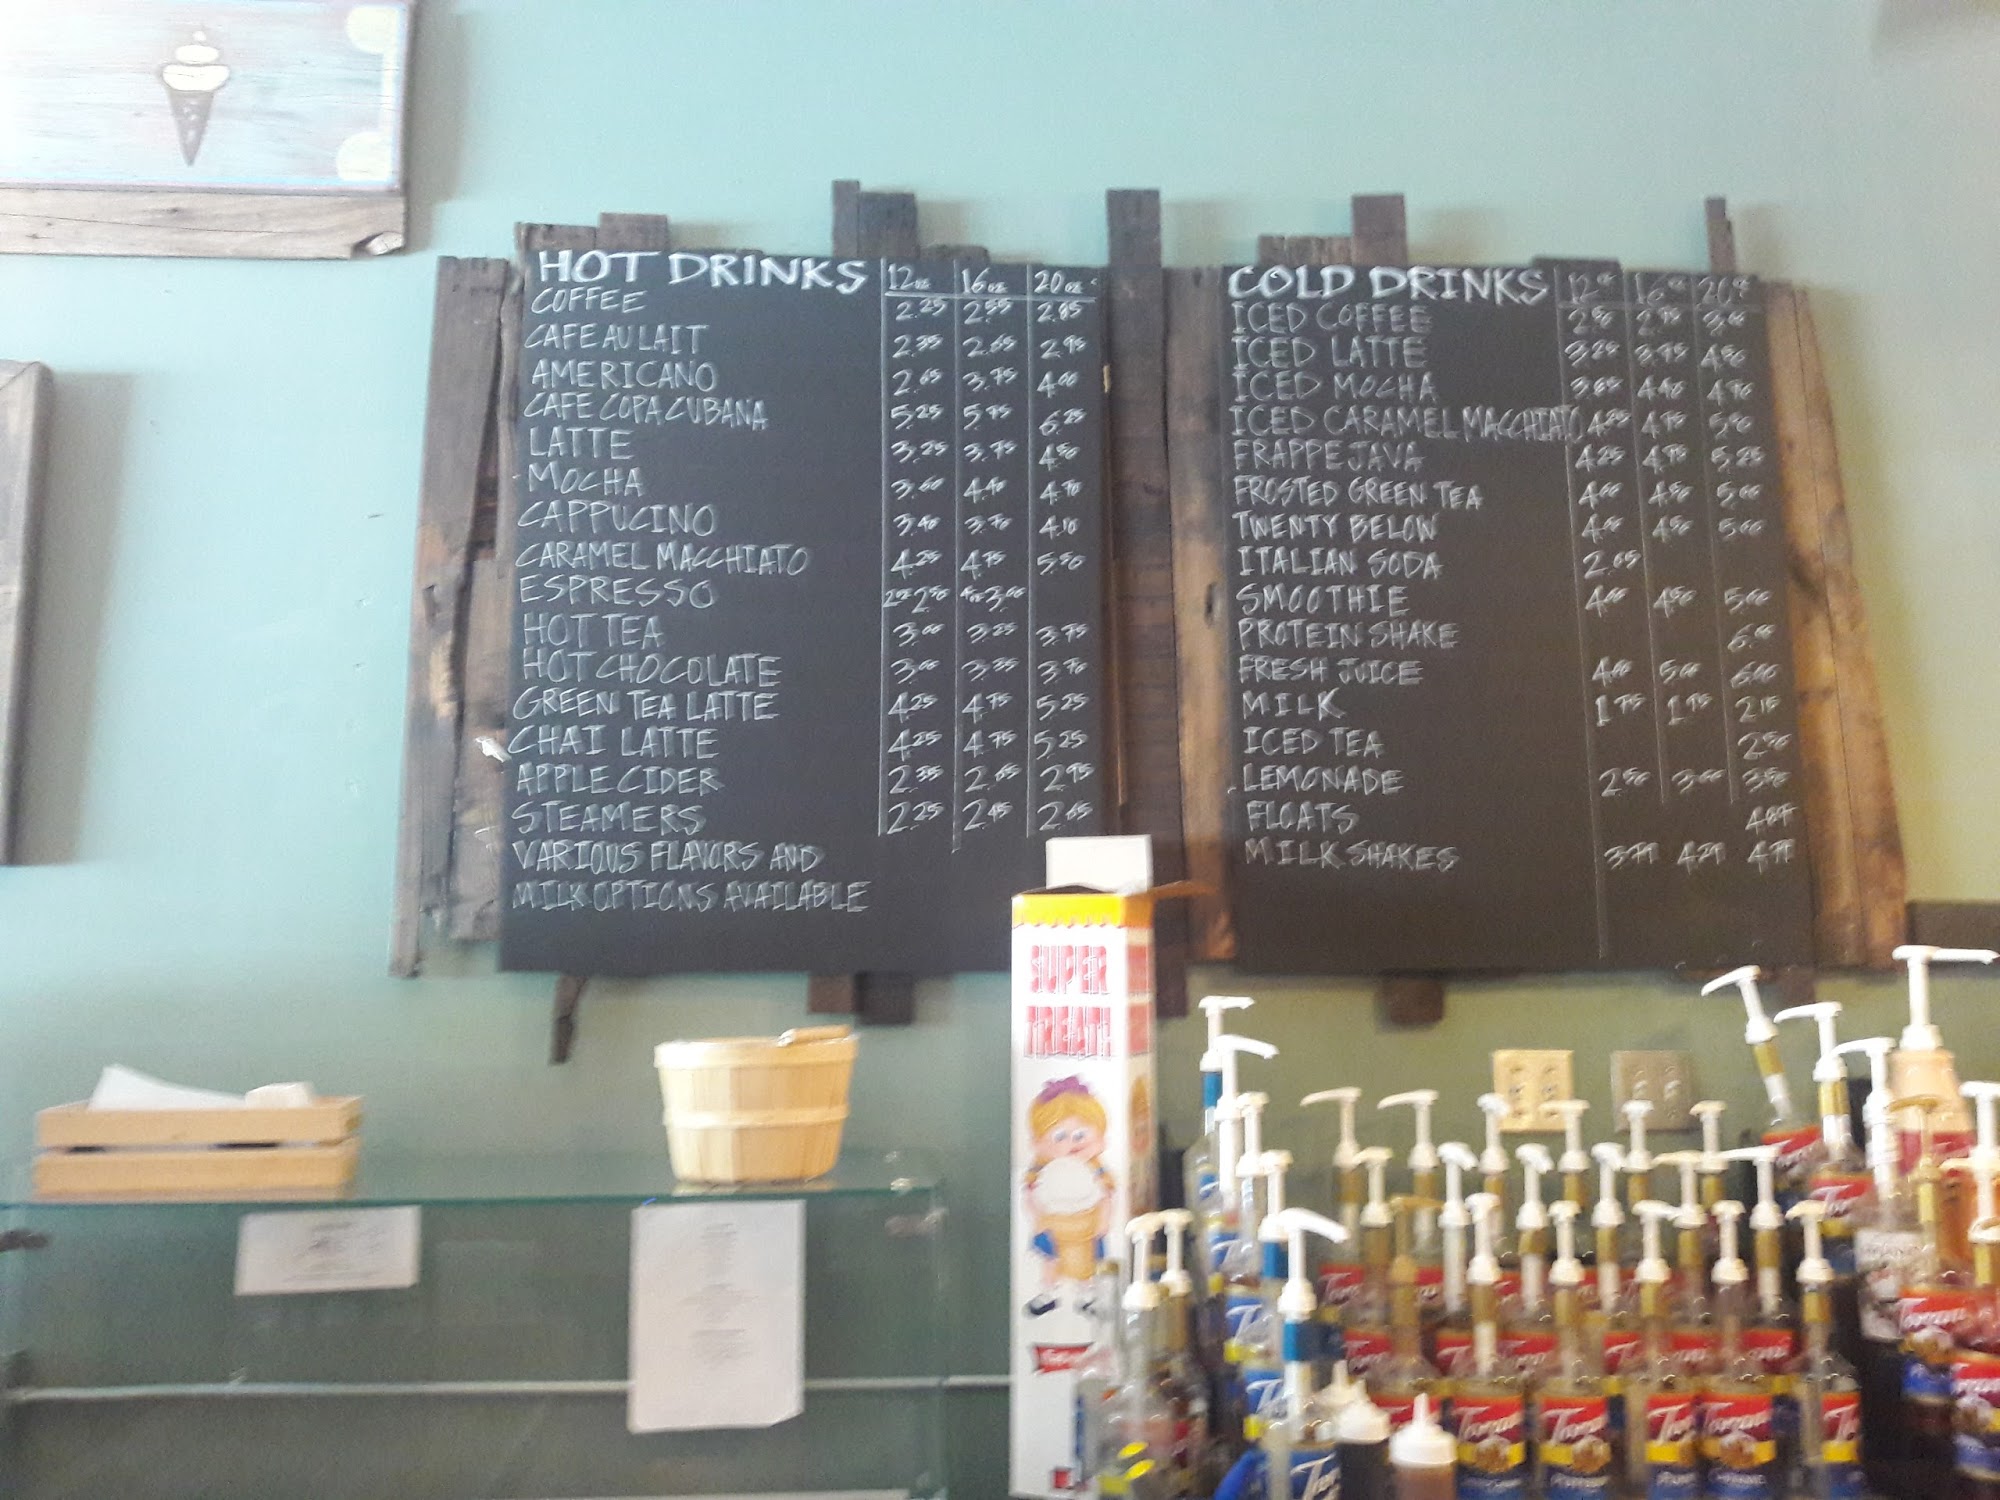 HOT DRINKS 12oz 16oz 20oz
COFFEE 2.25 2.55 2.85
CAFE AU LAIT 2.35 2.65 2.95
AMERICANO 2.65 3.75 4.00
CAFE COPA CUBANA 5.25 5.75 6.25
LATTE 3.25 3.75 4.50
MOCHA 3.60 4.40 4.70
CAPPUCINO 3.40 3.70 4.10
CARAMEL MACCHIATO 4.25 4.75 5.50
ESPRESSO 2oz 2.50 4oz 3.00
HOT TEA 3.00 3.25 3.75
HOT CHOCOLATE 3.00 3.35 3.70
GREEN TEA LATTE 4.25 4.75 5.25
CHAI LATTE 4.25 4.75 5.25
APPLE CIDER 2.35 2.65 2.95
STEAMERS 2.25 2.45 2.65
VARIOUS FLAVORS AND
MILK OPTIONS AVAILABLE
COLD DRINKS 12oz 16oz 20oz
ICED COFFEE 2.50 2.75 3.00
ICED LATTE 3.25 3.75 4.50
ICED MOCHA 3.85 4.40 4.70
ICED CARAMEL MACCHIATO 4.25 4.75 5.50
FRAPPE JAVA 4.25 4.75 5.25
FROSTED GREEN TEA 4.00 4.50 5.00
TWENTY BELOW 4.00 4.50 5.00
ITALIAN SODA 2.65
SMOOTHIE 4.00 4.50 5.00
PROTEIN SHAKE 6.00
FRESH JUICE 4.00 5.00 6.00
MILK 1.75 1.95 2.15
ICED TEA 2.50
LEMONADE 2.50 3.00 3.50
FLOATS
MILK SHAKES 3.79 4.29 4.79
SUPER
TREAT
Torani
Torani
Torani
Torani